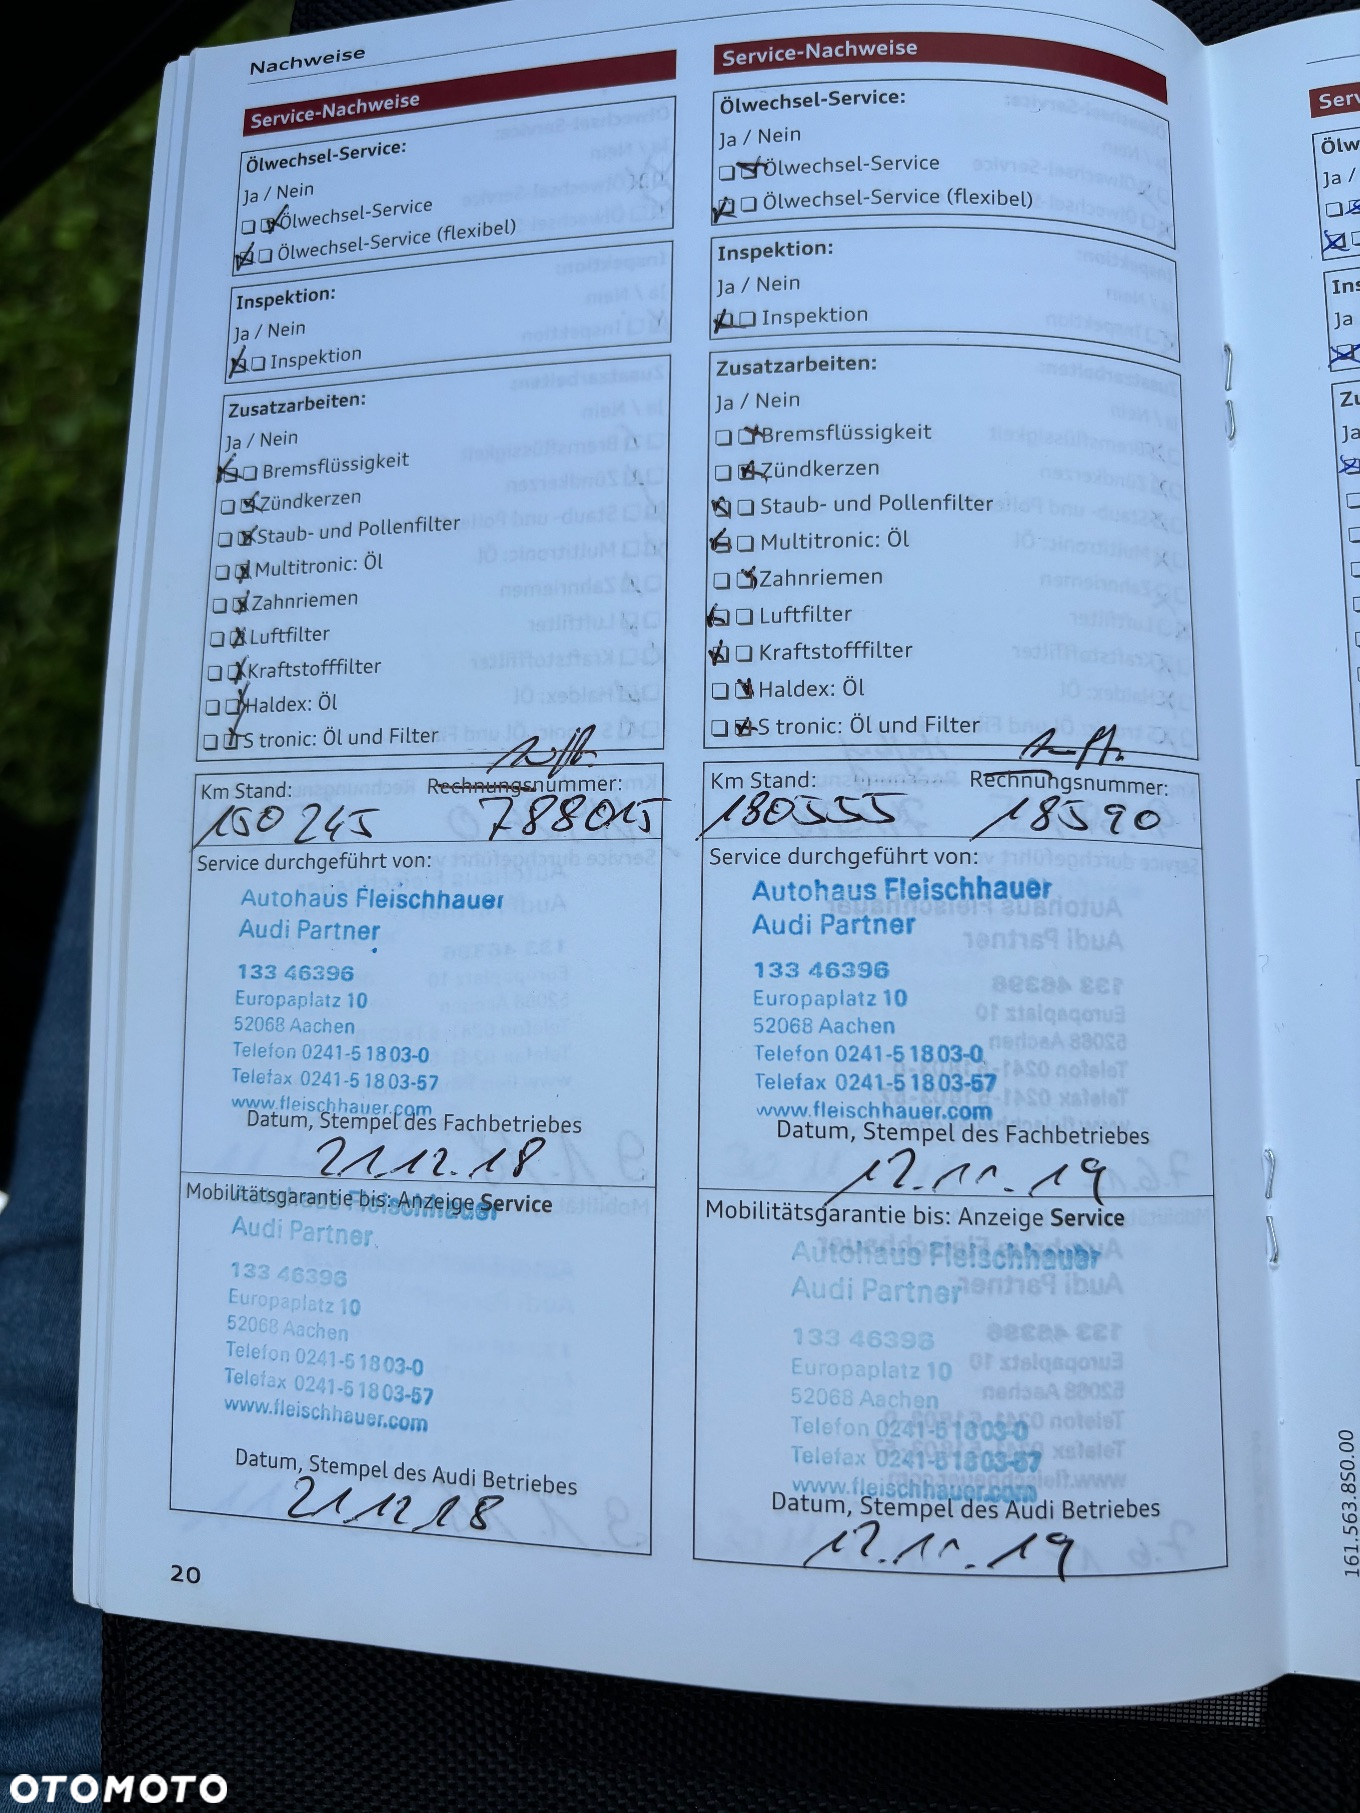 Nachweise
Service-Nachweise
Ölwechsel-Service:
Ja / Nein
Ölwechsel-Service
Ölwechsel-Service (flexibel)
Inspektion:
Ja / Nein
Inspektion
Zusatzarbeiten:
Ja / Nein
Bremsflüssigkeit
Zündkerzen
Staub- und Pollenfilter
Multitronic: Öl
Zahnriemen
Luftfilter
Kraftstofffilter
Haldex: Öl
S tronic: Öl und Filter
Km Stand: Rechnungsnummer:
150245 788015
Service durchgeführt von:
Autohaus Fleischhauer
Audi Partner
133 46396
Europaplatz 10
52068 Aachen
Telefon 0241-5 18 03-0
Telefax 0241-5 18 03-57
www.fleischhauer.com
Datum, Stempel des Fachbetriebes
21.12.18
Mobilitätsgarantie bis: Anzeige Service
Autohaus Fleischhauer
Audi Partner
133 46396
Europaplatz 10
52068 Aachen
Telefon 0241-5 18 03-0
Telefax 0241-5 18 03-57
www.fleischhauer.com
Datum, Stempel des Audi Betriebes
21.12.18
20
Service-Nachweise
Ölwechsel-Service:
Ja / Nein
Ölwechsel-Service
Ölwechsel-Service (flexibel)
Inspektion:
Ja / Nein
Inspektion
Zusatzarbeiten:
Ja / Nein
Bremsflüssigkeit
Zündkerzen
Staub- und Pollenfilter
Multitronic: Öl
Zahnriemen
Luftfilter
Kraftstofffilter
Haldex: Öl
S tronic: Öl und Filter
Km Stand: Rechnungsnummer:
180555 18590
Service durchgeführt von:
Autohaus Fleischhauer
Audi Partner
133 46396
Europaplatz 10
52068 Aachen
Telefon 0241-5 18 03-0
Telefax 0241-5 18 03-57
www.fleischhauer.com
Datum, Stempel des Fachbetriebes
12.11.19
Mobilitätsgarantie bis: Anzeige Service
Autohaus Fleischhauer
Audi Partner
133 46396
Europaplatz 10
52068 Aachen
Telefon 0241-5 18 03-0
Telefax 0241-5 18 03-57
www.fleischhauer.com
Datum, Stempel des Audi Betriebes
12.11.19
161.563.850.00
OTOMOTO